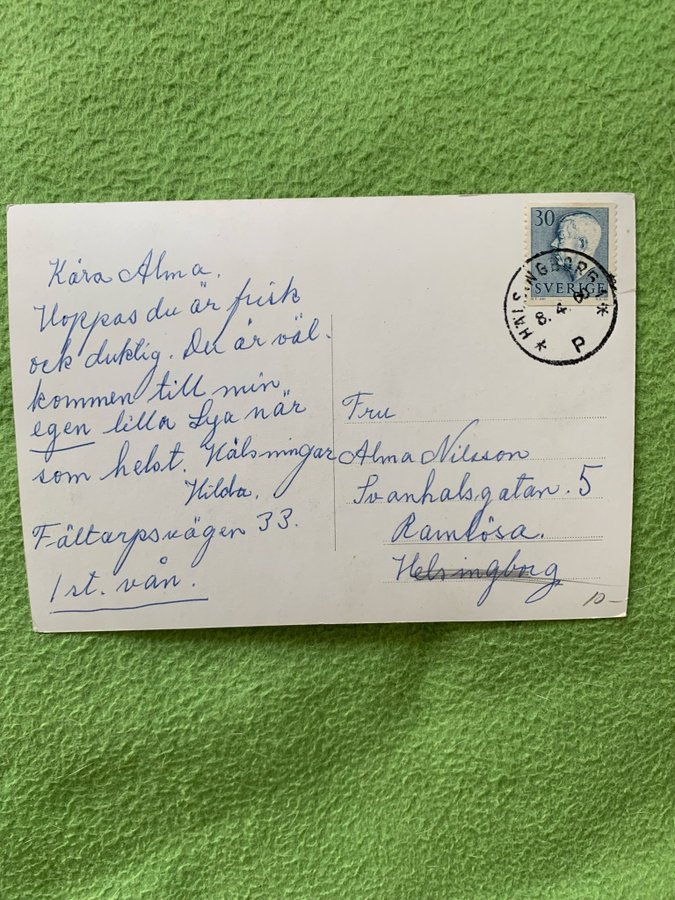 Kära Alma.
Hoppas du är frisk
och duktig. Du är väl-
kommen till min
egen lilla Lya när
som helst. Hälsningar
Hilda.
Fältarpsvägen 33.
1 st. vån.
30
SVERIGE
HÄLSINGBORG 1
8.4.
P
Fru
Alma Nilsson
Svanhalsgatan. 5
Ramlösa.
Helsingborg
10-